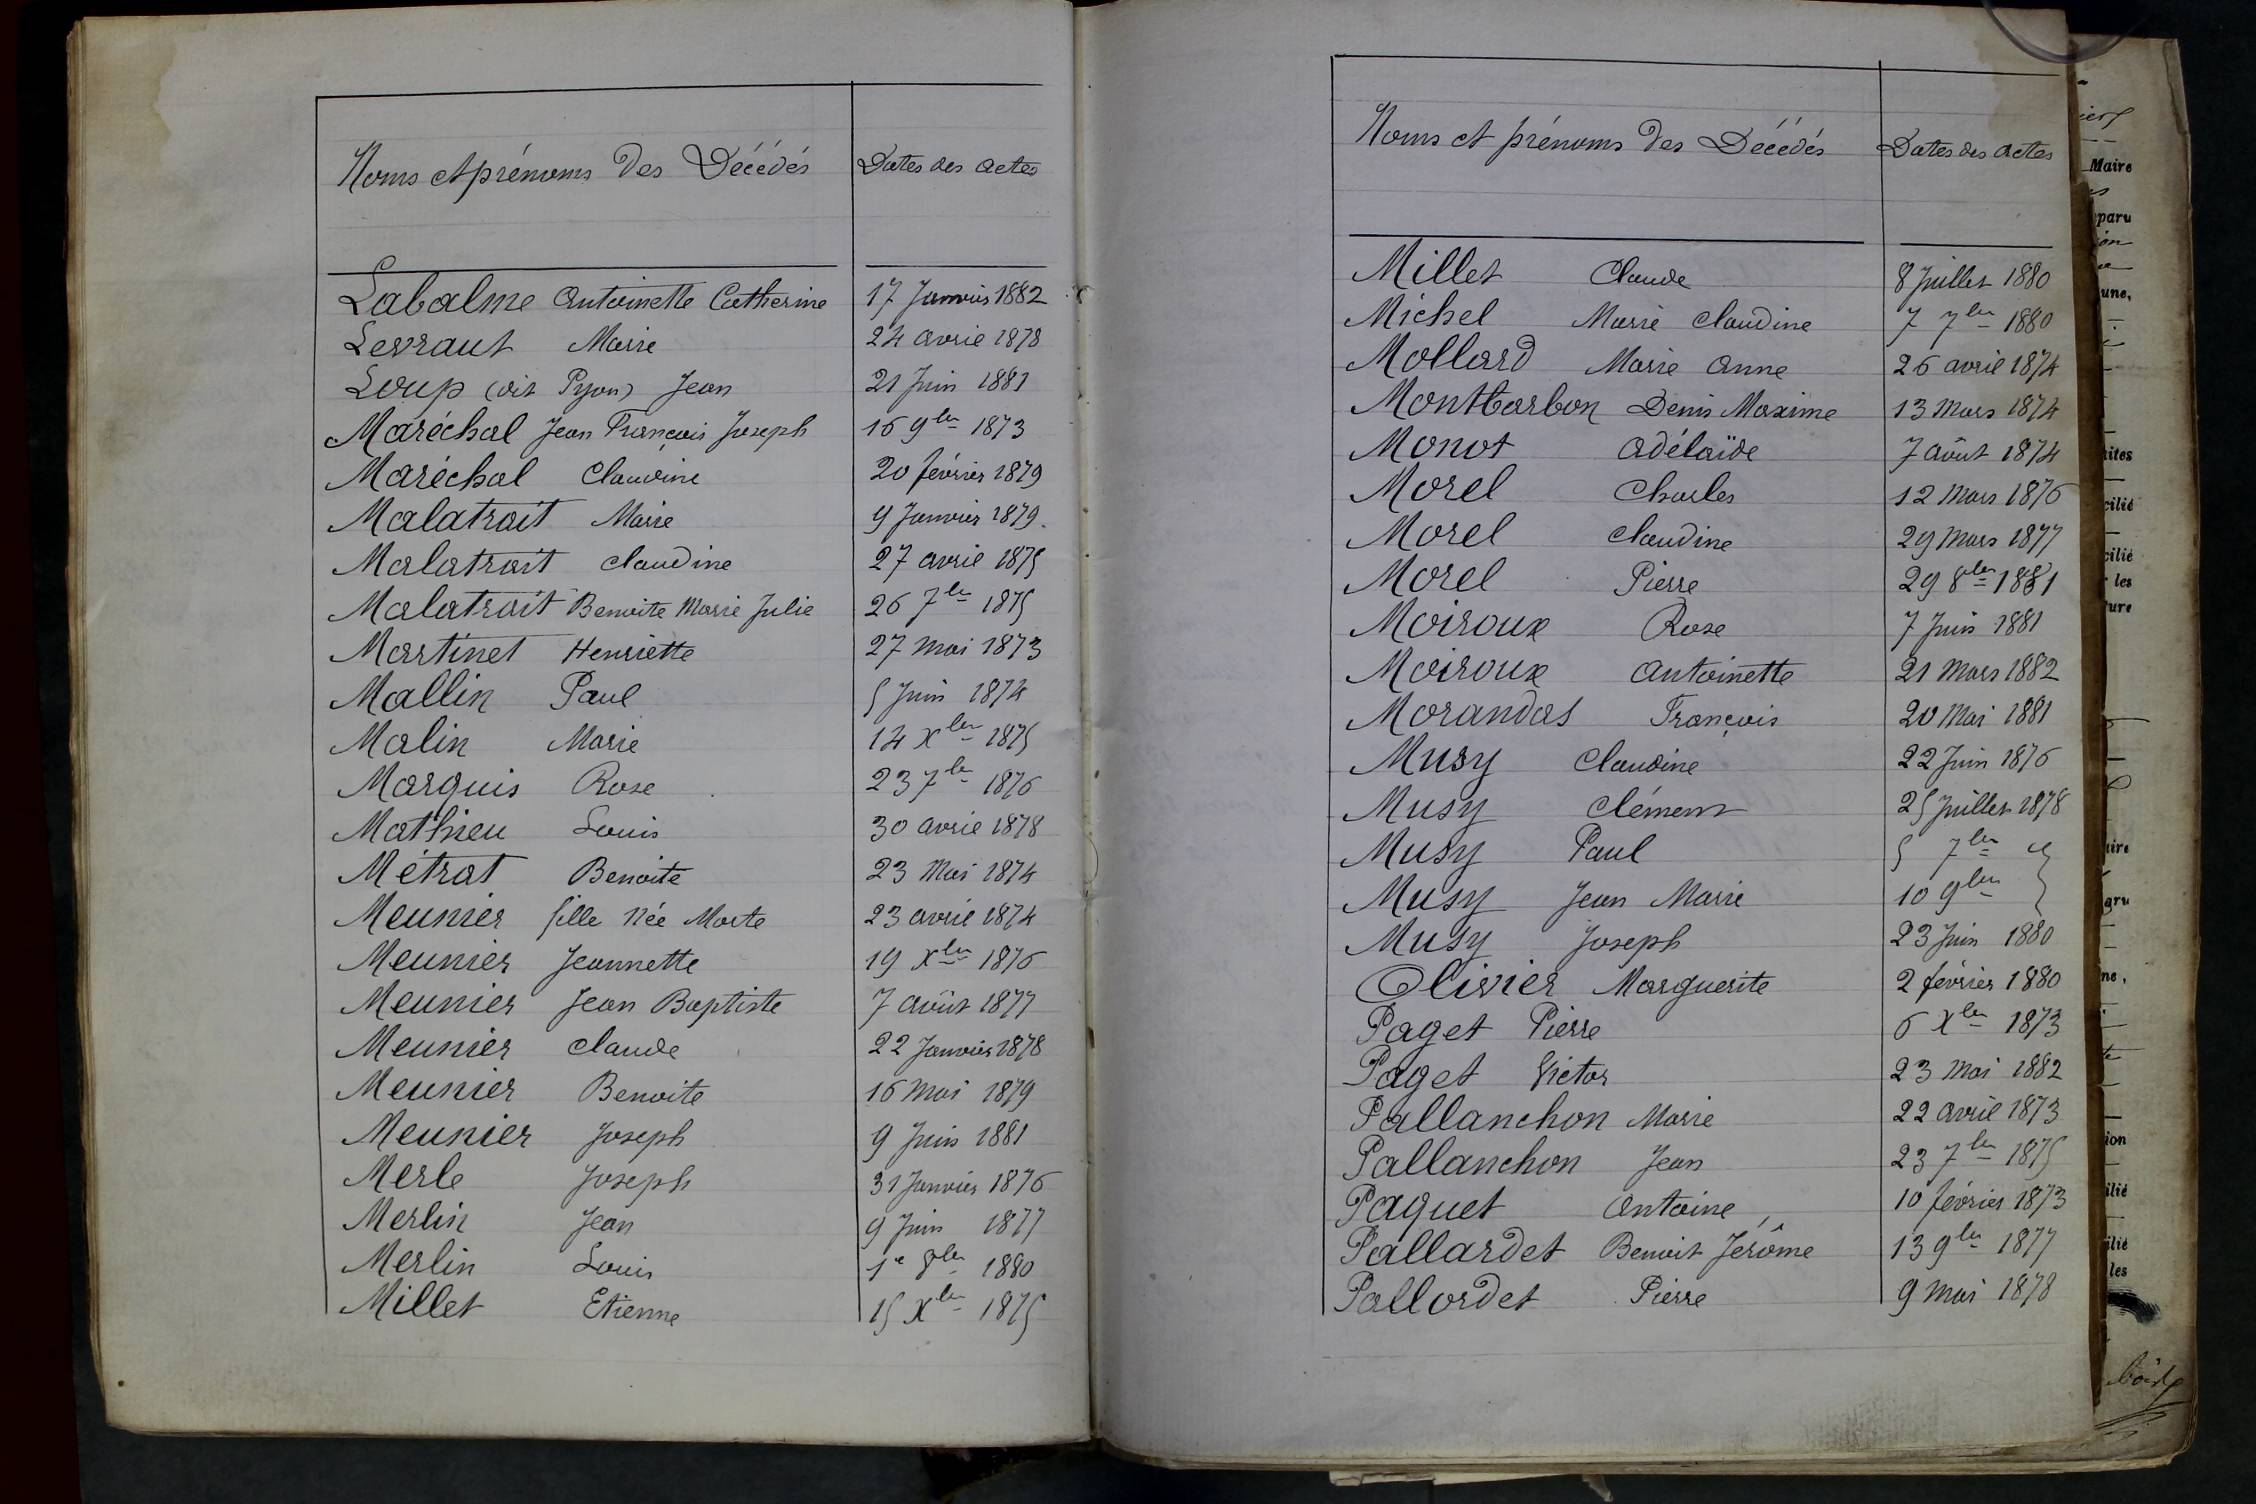 Noms et prénoms des Décédés Dates des actes
Labalme Antoinette Catherine 17 Janvier 1882
Levraut Marie 24 avril 1878
Loup (dit Pyon) Jean 21 Juin 1881
Maréchal Jean François Joseph 16 9bre 1873
Maréchal Claudine 20 février 1879
Malatrait Marie 9 Janvier 1879.
Malatrait Claudine 27 avril 1875
Malatrait Benoite Marie Julie 26 7bre 1875
Martinet Henriette 27 mai 1873
Mallin Paul 5 Juin 1874
Malin Marie 14 Xbre 1875
Marquis Rose 23 7bre 1876
Mathieu Louis 30 avril 1878
Métrat Benoite 23 Mai 1874
Meunier fille Née Morte 23 avril 1874
Meunier Jeannette 19 Xbre 1876
Meunier Jean Baptiste 7 août 1877
Meunier Claude 22 Janvier 1878
Meunier Benoite 16 Mai 1879
Meunier Joseph 9 Juin 1881
Merle Joseph 31 Janvier 1876
Merlin Jean 9 Juin 1877
Merlin Louis 1e 8bre 1880
Millet Etienne 15 Xbre 1875
Noms et prénoms des Décédés Dates des actes
Millet Claude 8 Juillet 1880
Michel Marie Claudine 7 7bre 1880
Mollard Marie Anne 26 avril 1874
Montbarbon Denis Maxime 13 Mars 1874
Monot Adélaïde 7 août 1874
Morel Charles 12 Mars 1876
Morel Claudine 29 Mars 1877
Morel Pierre 29 8bre 1881
Moiroux Rose 7 Juin 1881
Moiroux Antoinette 21 Mars 1882
Morandas François 20 Mai 1881
Musy Claudine 22 Juin 1876
Musy Clément 25 Juillet 1878
Musy Paul 5 7bre
Musy Jean Marie 10 9bre
Musy Joseph 23 Juin 1880
Olivier Marguerite 2 février 1880
Paget Pierre 6 Xbre 1873
Paget Victor 23 Mai 1882
Pallanchon Marie 22 avril 1873
Pallanchon Jean 23 7bre 1875
Paquet Antoine 10 février 1873
Pallardet Benoit Jérôme 13 9bre 1877
Pallordet Pierre 9 mai 1878
Maire